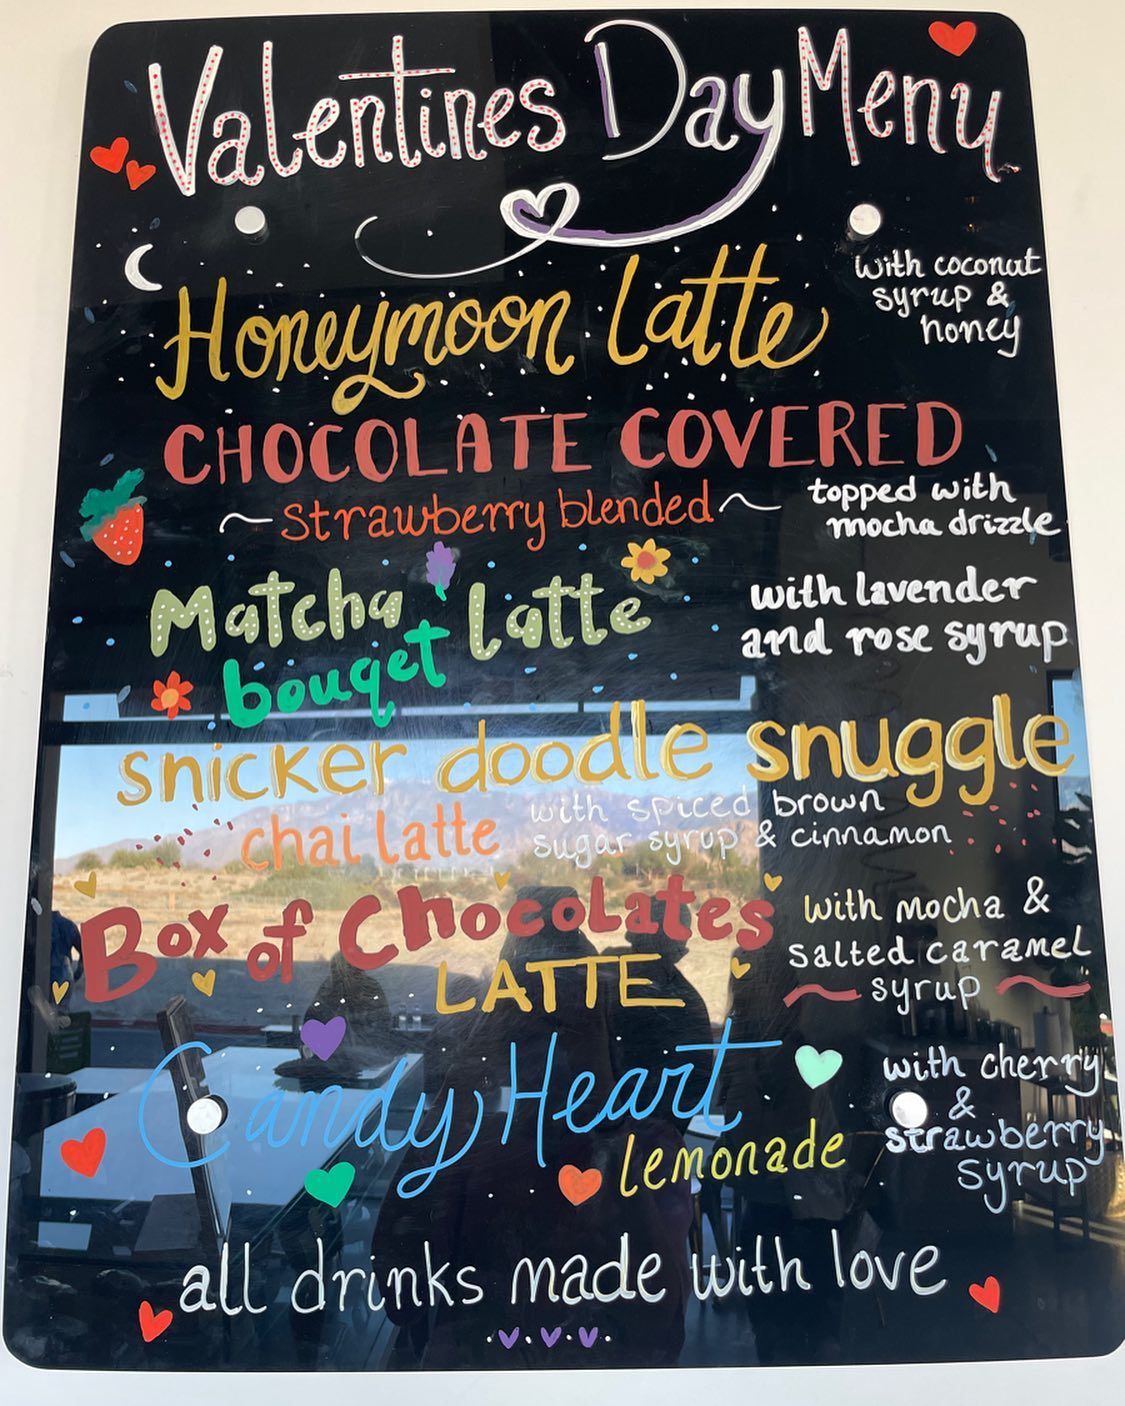 Valentines Day Menu
Honeymoon Latte
with coconut
syrup &
honey
CHOCOLATE COVERED
~ Strawberry blended ~
topped with
mocha drizzle
Matcha Latte
bouqet
with lavender
and rose syrup
snicker doodle snuggle
chai latte
with spiced brown
sugar syrup & cinnamon
Box of Chocolates
LATTE
with mocha &
salted caramel
~ syrup ~
Candy Heart
lemonade
with cherry
&
strawberry
syrup
all drinks made with love